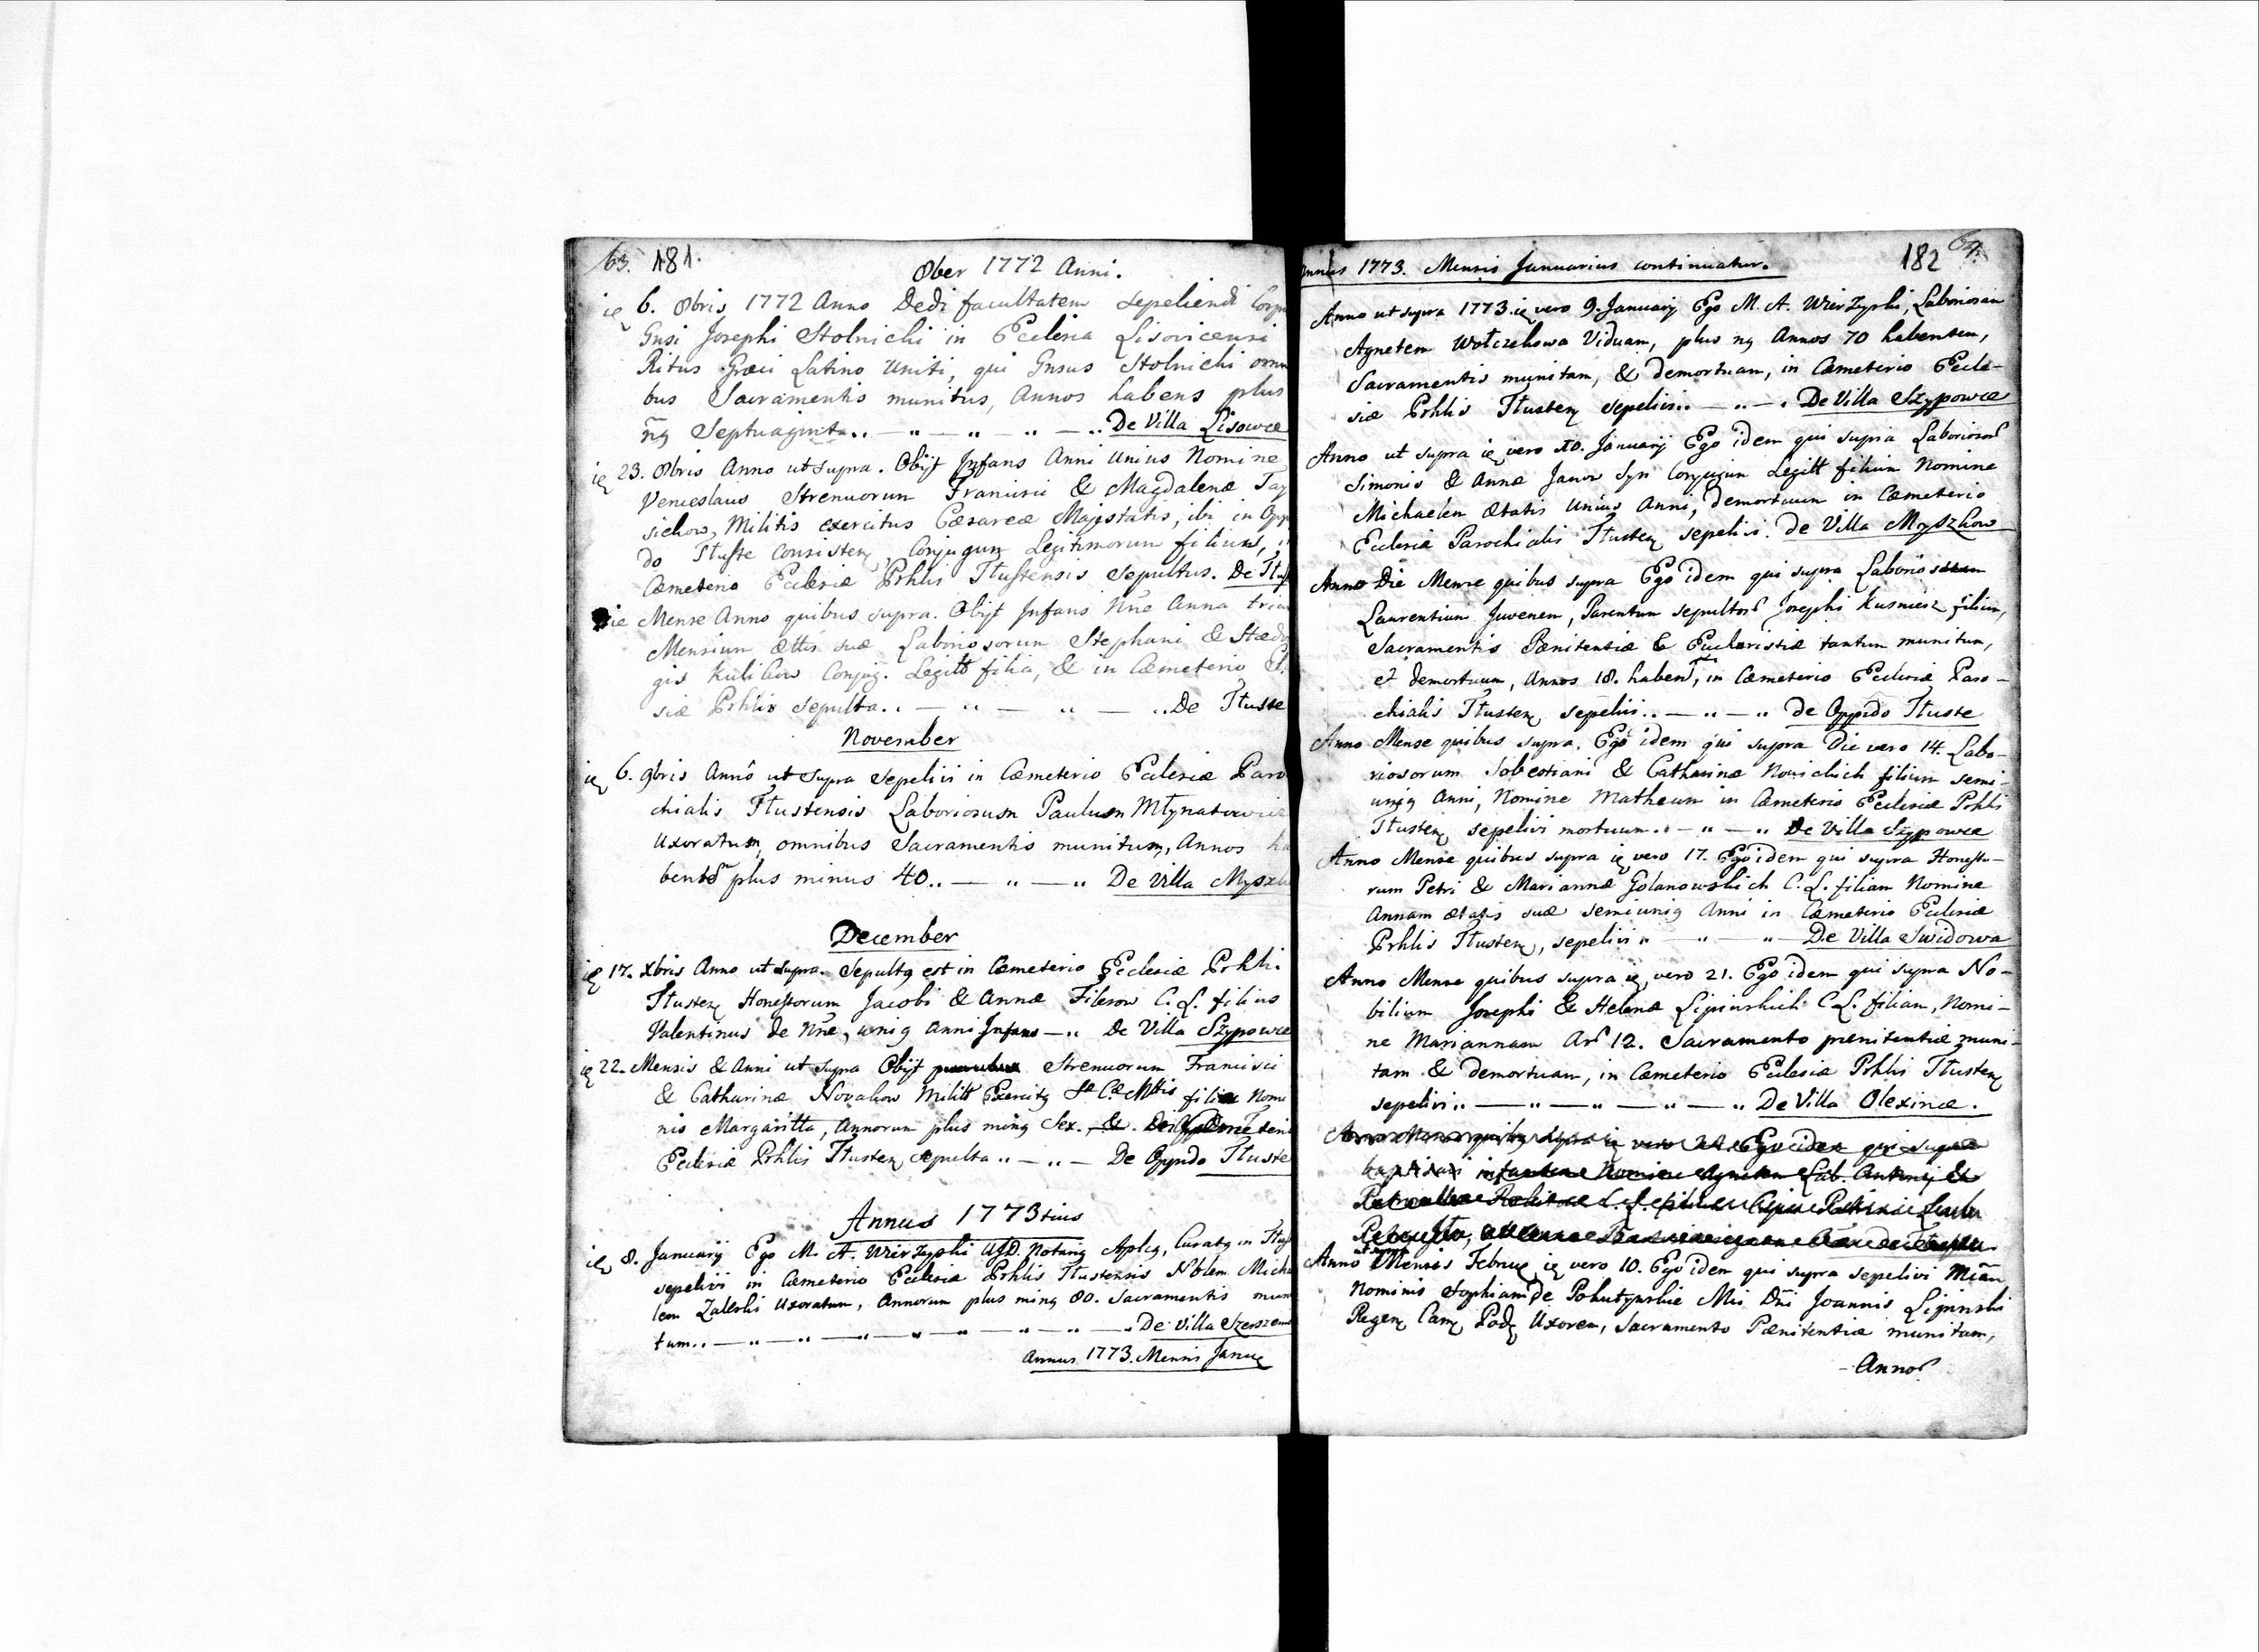 63. 181.
8ber 1772 Anni.
ie 6. 8bris 1772 Anno Dedi facultatem sepeliendi Corp
Gnsi Josephi Stolnicki in Ecclesia Lisovicensi
Ritus Græci Latino Uniti, qui Gnsus Stolnicki omni
bus Sacramentis munitus, Annos habens plus
Septuaginta.. — „ — „ — „ — .. De Villa Lisowce
ie 23. 8bris Anno ut supra. Obijt Infans Anni Unius Nomine
Venceslaus Strenuorum Francisci & Magdalenæ
sickow, Militis exercitus Cæsareæ Majestatis, ibi in Opp
do Tłuste consisten, Conjugum Legitimorum filius,
Cæmeterio Ecclesiæ Prhlis Tłustensis sepultus. De Tłus
ie Mense Anno quibus supra. Obijt Infans Nne Anna trium
Mensium ættis suæ Laboriosorum Stephani &
gis Kulikow Conjug. Legitt filia, & in Cæmeterio
siæ Prhlis sepulta.. — „ — „ — .. De Tłuste
November
ie 6. 9bris Anno ut supra sepelivi in Cæmeterio Ecclesiæ Paro
chialis Tłustensis Laboriosum Paulum Młynarowicz
Uxoratum, omnibus Sacramentis munitum, Annos ha
bent plus minus 40.. — „ — „ De Villa Myszk
December
ie 17. Xbris Anno ut supra. Sepultg est in Cæmeterio Ecclesiæ Prhli.
Tłusten Honestorum Jacobi & Annæ Filerow C. L. filius
Valentinus de Nne, unig Anni Infans —„ De Villa Szypowce
ie 22. Mensis & Anni ut supra Obijt Strenuorum Francisci
& Catharinæ Novakow Militt Exercitg filia Nomi
nis Margaritta, Annorum plus ming Sex.
Ecclesiæ Prhlis Tłusten sepulta „ — „ — De Oppido Tłuste
Annus 1773tius
ie 8. January Ego M. A. Wierzyski UJD. Notarig Aplcg, Curatg in Tłus
sepelivi in Cæmeterio Ecclesiæ Prhlis Tłustensis Nblem Micha
lem Zaleski Uxoratum, Annorum plus ming 80. Sacramentis muni
tum.. — „ — „ — „ — „ — „ — „ — De Villa
Annus 1773. Mensis Janu
182 64.
nnus 1773. Mensis Januarius continuatur.
Anno ut supra 1773. ie vero 9. January Ego M. A. Wierzyski, Laboriosam
Agnetem Wołczekowa Viduam, plus ng Annos 70 habentem,
Sacramentis munitam, & demortuam, in Cæmeterio Eccle-
siæ Prhlis Tłusten sepelivi.. — „ — „ De Villa Szypowce
Anno ut supra ie vero 10. January Ego idem qui supra Laborioso
Simonis & Annæ Janow Syn Conjugum Legitt filium Nomine
Michaelem Ætatis Unius Anni, demortuum in Cæmeterio
Ecclesiæ Parochialis Tłusten sepelivi. de Villa Myszkow
Anno Die Mense quibus supra Ego idem qui supra Laborio
Laurentium Juvenem, Parentum sepultor Josephi Kusmierz filium,
Sacramentis Pœnitentiæ & Eucharistiæ tantum munitum,
et demortuum, Annos 18. haben, in Cæmeterio Ecclesiæ Paro-
chialis Tłusten sepelivi.. — „ — „ de Oppido Tłuste
Anno Mense quibus supra, Ego idem qui supra Die vero 14. Labo-
riosorum Sobestiani & Catharinæ Novickich filium semi-
unig Anni, Nomine Matheum in Cæmeterio Ecclesiæ Prhli
Tłusten sepelivi mortuum.. — „ — „ De Villa Szypowce
Anno Mense quibus supra ie vero 17. Ego idem qui supra Honesto-
rum Petri & Mariannæ Golanowskich C. L. filiam Nomine
Annam ætatis suæ semiunig Anni in Cæmeterio Ecclesiæ
Prhlis Tłusten, sepelivi „ — „ — De Villa Swidowa
Anno Mense quibus supra ie vero 21. Ego idem qui supra No-
bilium Josephi & Helenæ Lipinskich C. L. filiam, Nomi-
ne Mariannam An 12. Sacramento pœnitentiæ muni-
tam & demortuam, in Cæmeterio Ecclesiæ Prhlis Tłusten
sepelivi „ — „ — „ — „ — „ De Villa Olexince.
Anno Mense quibg supra ie vero Ego idem qui supra
baptisavi infantem Nomine Agnetem Lab. Antonij &
Anno ut supra Mensis Februg ie vero 10. Ego idem qui supra sepelivi
Nominis Sophiam de Pokutynskie Mci Dni Joannis Lipinski
Regen Cam Pod Uxorem, Sacramento Pœnitentiæ munitam,
- Anno